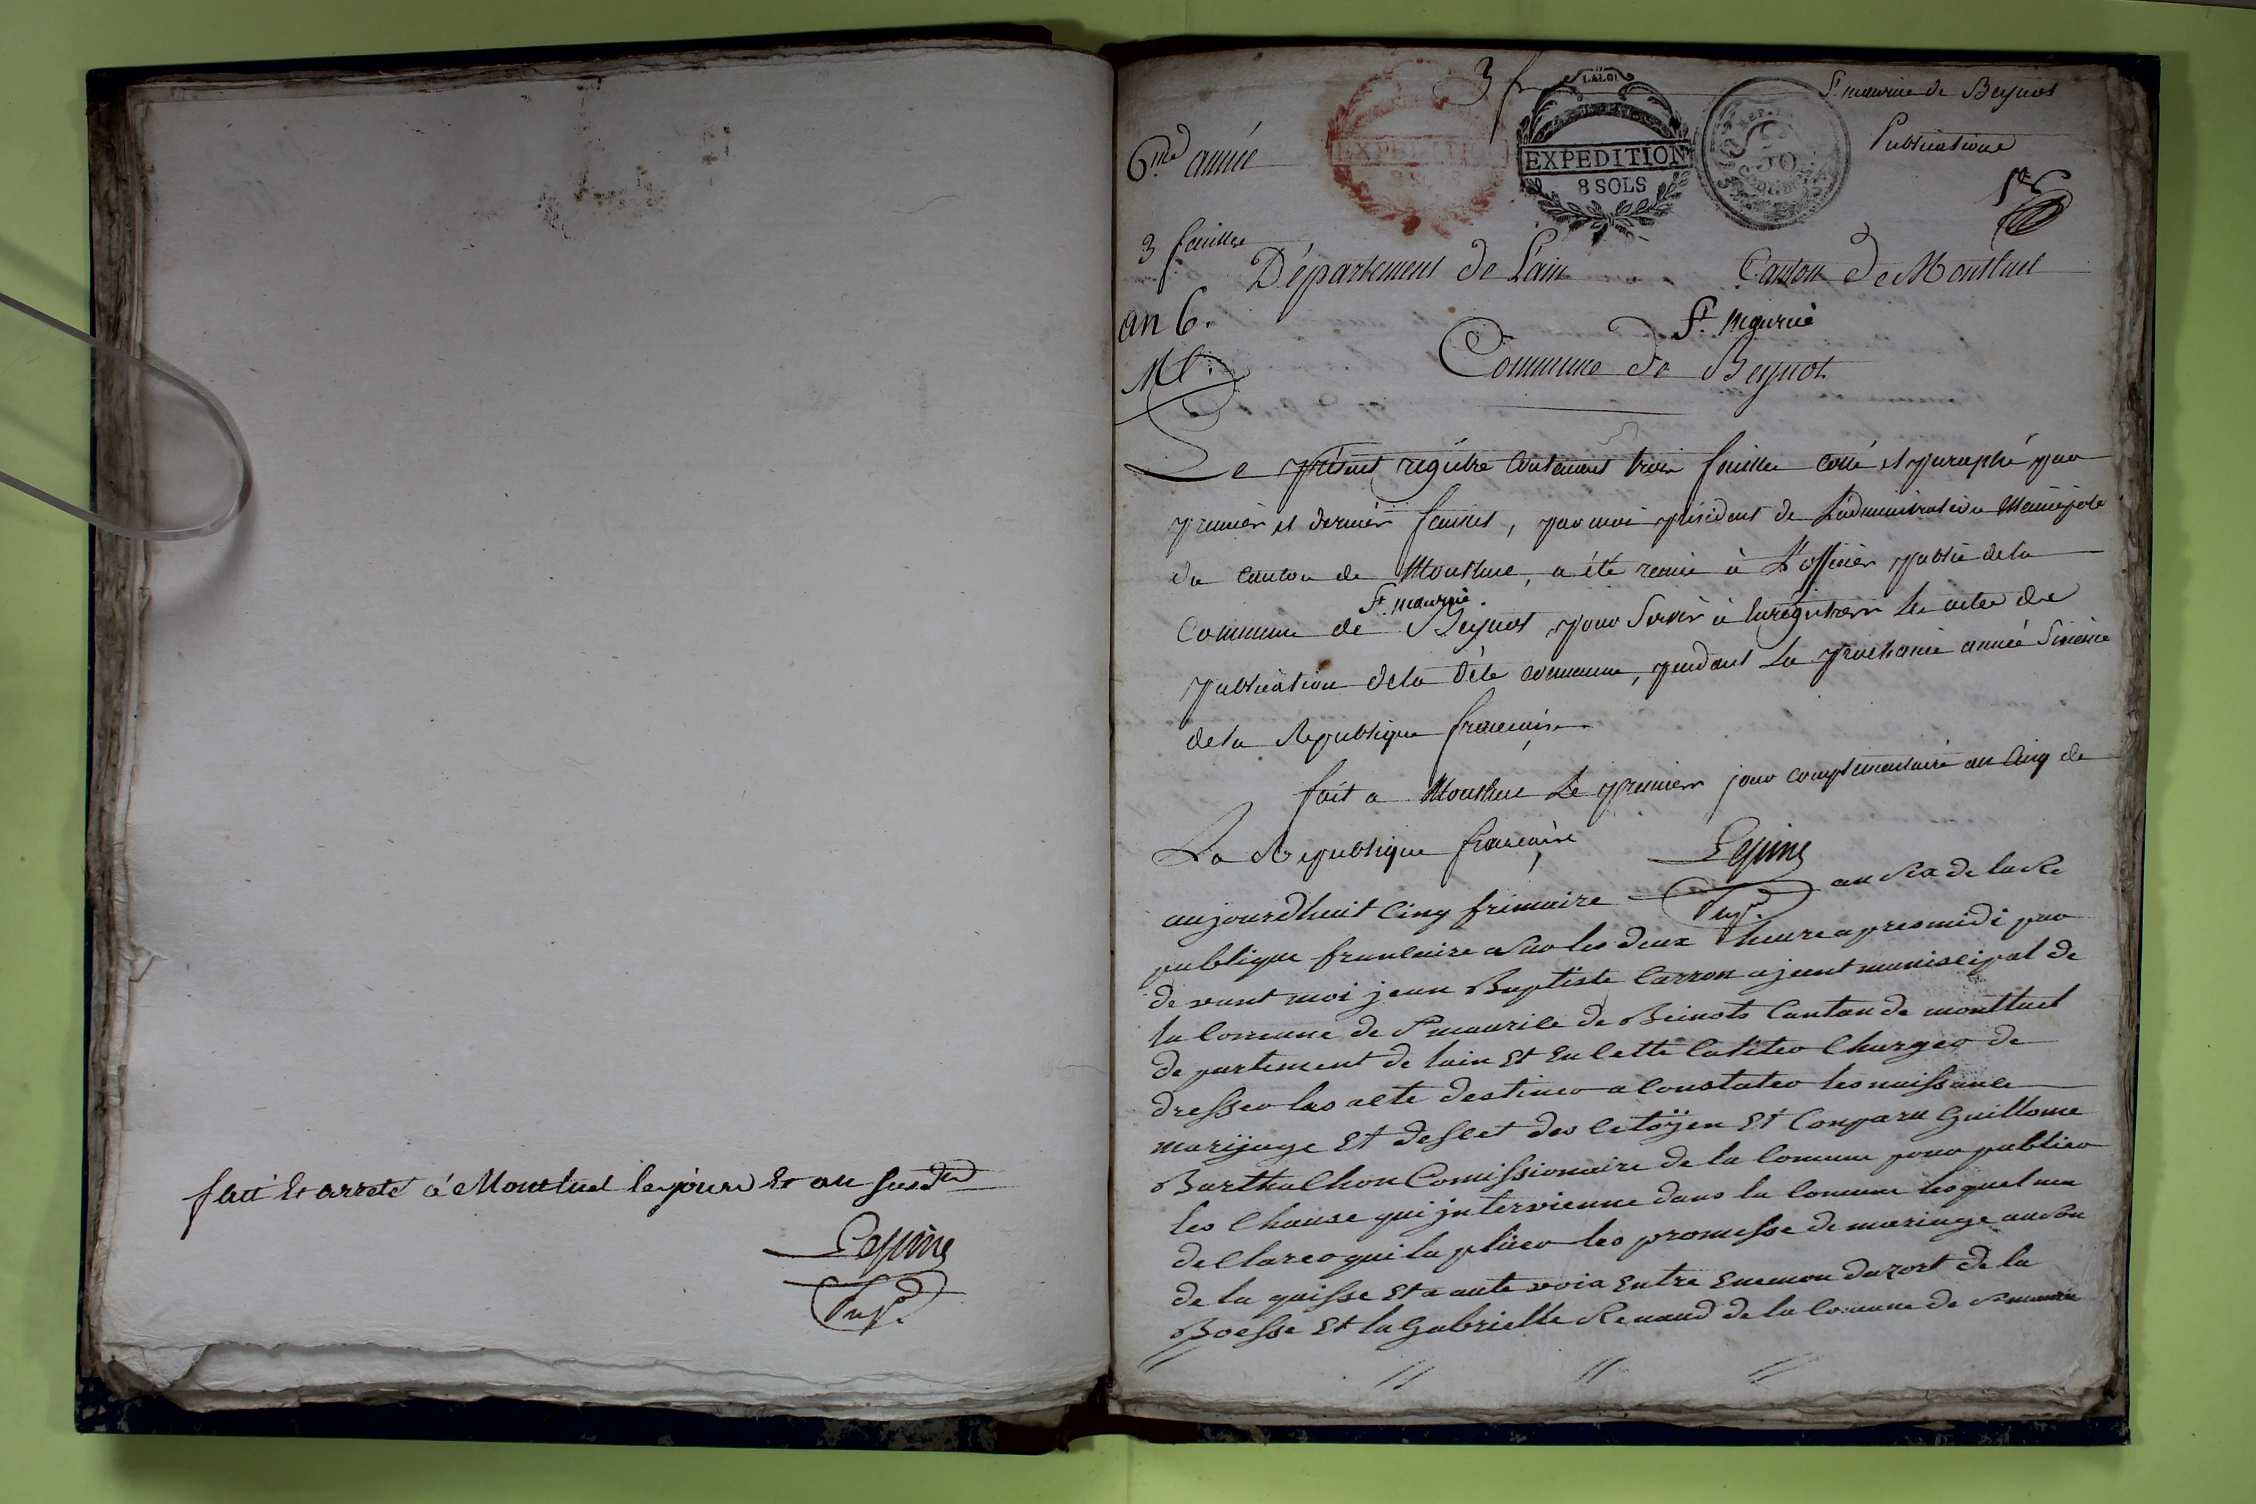 fait et arrêté à Montluel les jours et an susdit
Lepine
3 f
LA LOI
EXPEDITION
8 SOLS
St maurice de Beynost
Publications
6me année
3 feuilles
Département de L'ain
Canton de Montluel
an 6.
St. Maurice
Commune de Beynot
Le présent régistre contenant trois feuilles cotté et paraphé par
premier et dernier feuillet, par moi président de L'administration Municipale
du canton de Montluel, a été remis à L'officier public de la
St. maurice
Commune de Beynost pour Servir à Enregistrer les actes de
publication de la dite commune, pendant La prochaine année Sixieme
de la Republique francaise
fait a Montluel Le premier jour complementaire an Cinq de
La Republique francaise
Lepine
aujourdhuit Cinq frimaire an six de la Re
publique francaise a sur les deux heure apres midi par
devant moi jean Baptiste Carron ajent municipal de
la Comune de St maurice de Beinots Canton de montluel
departement de lain Et En Cette Calites Charges de
dresser les acte destines a Constater les naissance
marijage Et desset des Citöyen Et Conparu Guillome
Barthalhon Comissionaire de la Comune pour publier
les Chause qui jntervienne dans la Comune lesquel ma
declares qui la plües les promesse de mariage au son
de la quisse Et a aute voix Entre Enemon duport de la
Boesse Et la Gabrielle Renaud de la Comune de St maurice